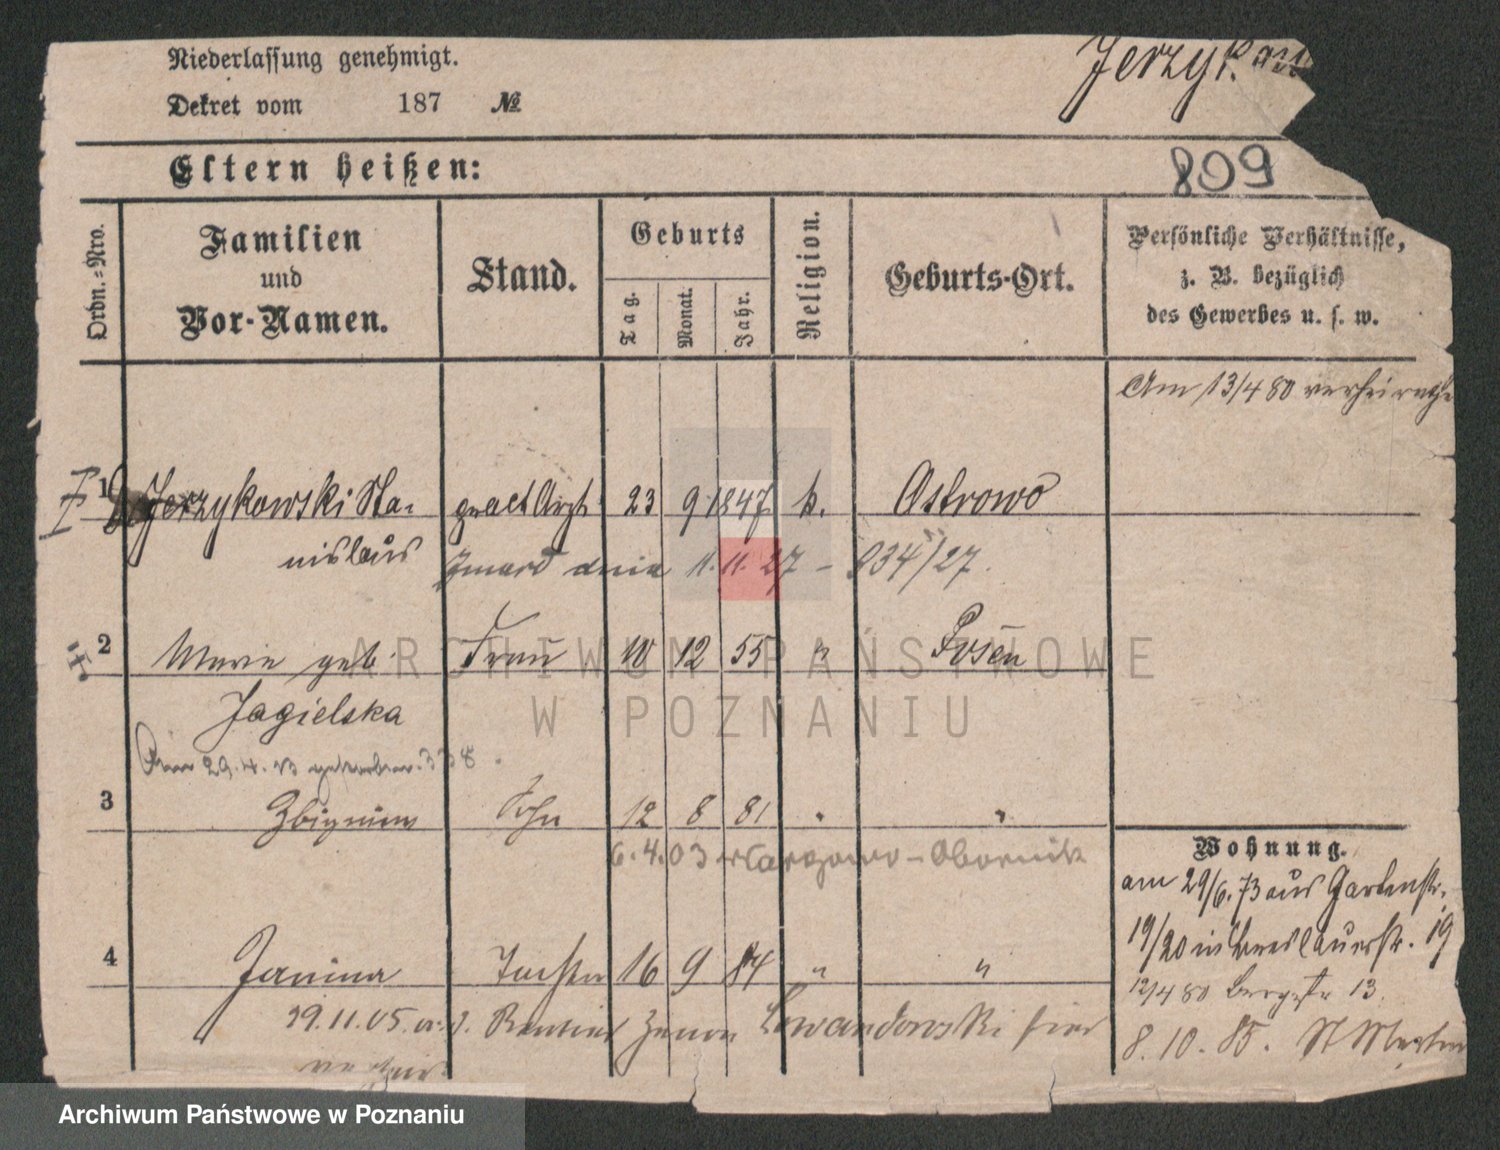 Niederlassung genehmigt.
Dekret vom 187 №
Jerzyk
809
Eltern heißen:
Ordn.=Nro.
Familien und Vor-Namen.
Stand.
Geburts
Tag. Monat. Jahr.
Religion.
Geburts-Ort.
Persönliche Verhältnisse, z. B. bezüglich des Gewerbes u. s. w.
Am 13/4 80 verheirathet
1 Jerzykowski Sta- pract Arzt 23 9 1847 k. Ostrowo
nislaus
zmarł dnia 11.11.27 – 934/27.
2 Marie geb Frau 10 12 55 " Posen
Jagielska
Am 29.4.13 gestorben. 338.
3 Zbigniew Sohn 12 8 81 " "
6.4.03 Obornik
4 Janina Tochter 16 9 84 " "
19.11.05 Rentier Zenon Lewandowski hier
verheir
Wohnung.
am 29/6.73 aus Gartenstr.
19/20 in Breslauerstr. 19
12/4 80 Bergstr 13.
8.10.85. St Martin
ARCHIWUM PAŃSTWOWE
W POZNANIU
Archiwum Państwowe w Poznaniu